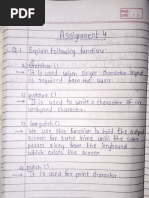 Assignment 4
Q.1 Explain following functions:
a) getchar()
→ It is used when single character input
required from the user.
→ It is used to write a character or an
unsigned character.
→ We use this function to hold the output
screen for some time until the user
passes a key from the keyboard
which exists the screen
→ It is used for print character.